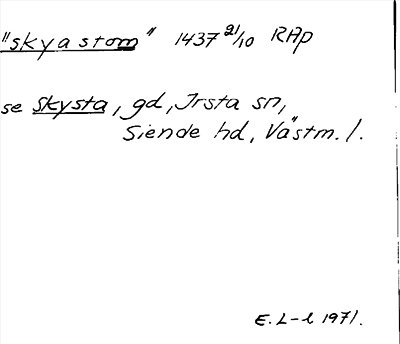 "skyastom" 1437 21/10 RAp
se skysta, gd, Irsta sn,
Siende hd, Västm. l.
E. L-l 1971.